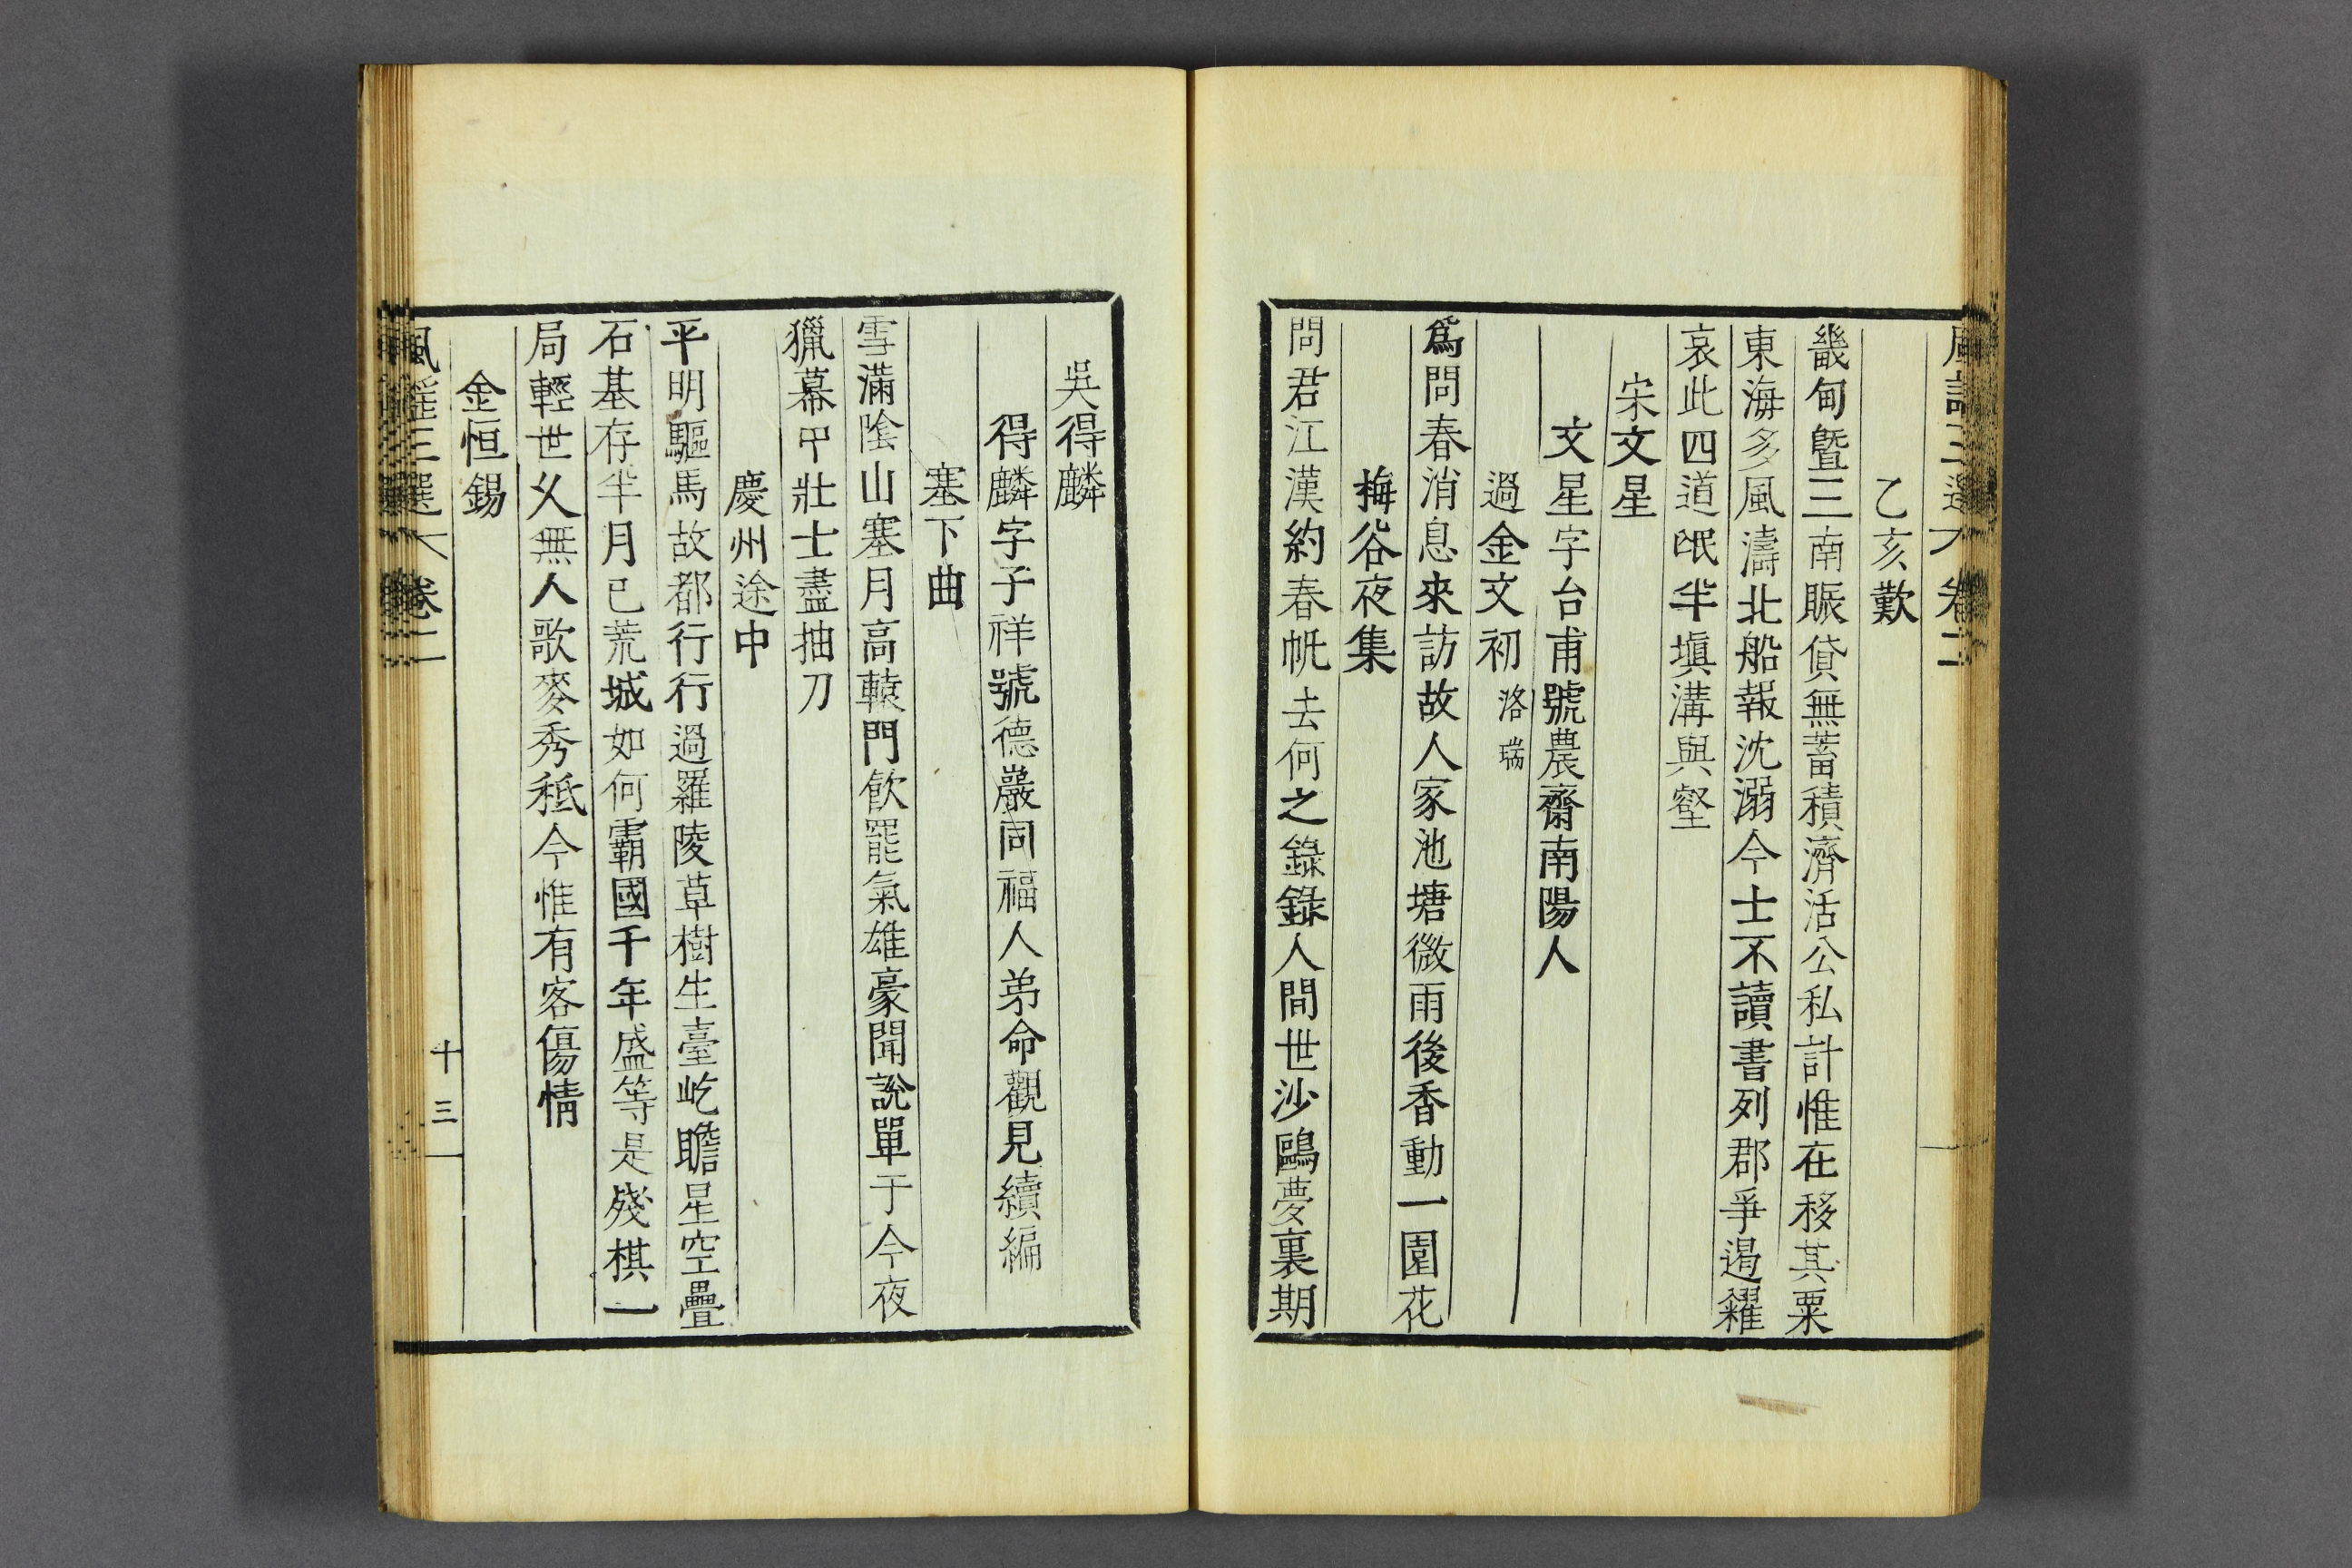 風謠三選 卷二
乙亥歎
畿甸曁三南賑貸無蓄積濟活公私計惟在移其粟
東海多風濤北船報沈溺今士不讀書列郡爭遏糴
哀此四道氓半塡溝與壑
宋文星
文星字台甫號農齋南陽人
過金文初洛瑞
爲問春消息來訪故人家池塘微雨後香動一園花
梅谷夜集
問君江漢約春帆去何之錄錄人間世沙鷗夢裏期
吳得麟
得麟字子祥號德巖同福人弟命觀見續編
塞下曲
雪滿陰山塞月高轅門飮罷氣雄豪聞說單于今夜
獵幕中壯士盡抽刀
慶州途中
平明驅馬故都行行過羅陵草樹生臺屹瞻星空疊
石基存半月已荒城如何霸國千年盛等是殘棋一
局輕世久無人歌麥秀秪今惟有客傷情
金恒錫
風謠三選 卷二 十三